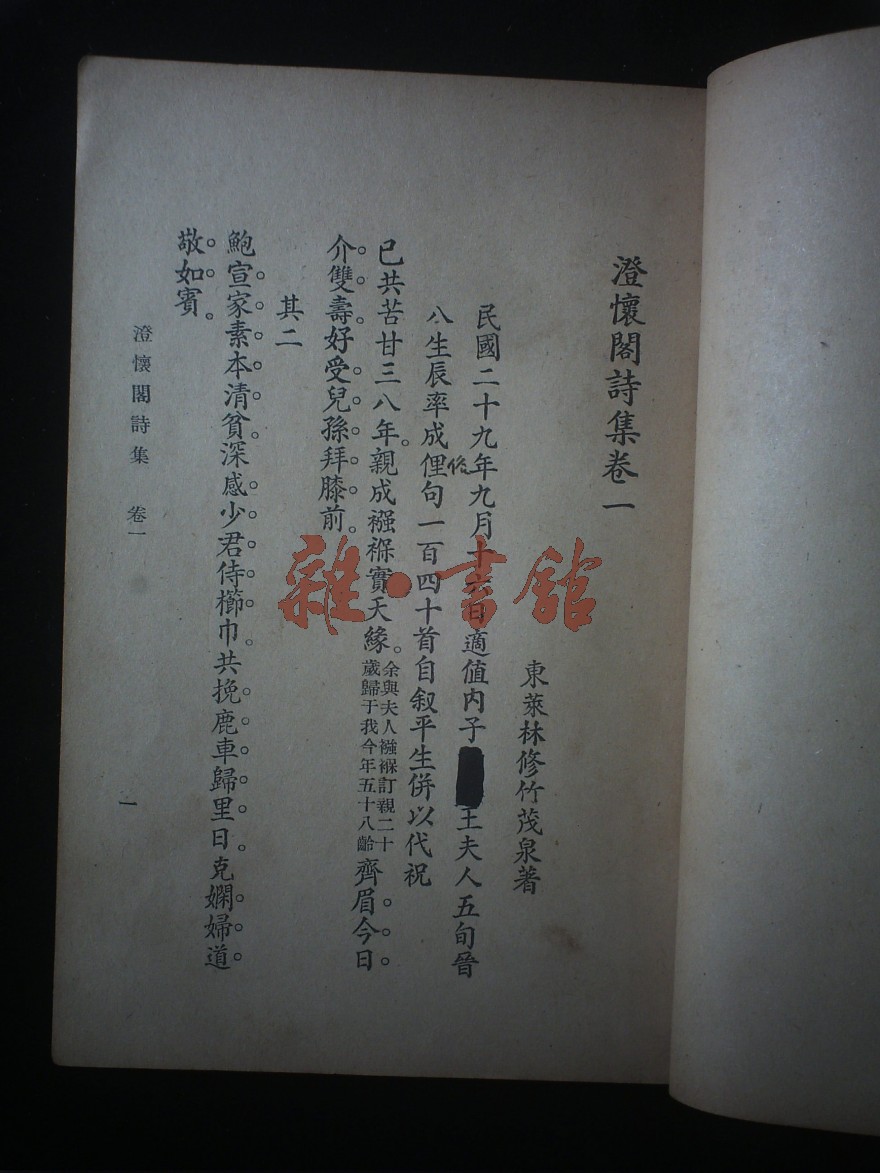 澄懷閣詩集卷一
東萊林修竹茂泉著
民國二十九年九月十六日適值內子王夫人五旬晉
八生辰率成俚句一百四十首自叙平生併以代祝
後
已共苦甘三八年。親成襁褓實天緣。余與夫人襁褓訂親二十歲歸于我今年五十八齡齊眉今日
介雙壽好受兒孫拜膝前。
其二
鮑宣家素本清貧。深感少君侍櫛巾。共挽鹿車歸里日。克嫻婦道
敬如賓。
澄懷閣詩集 卷一
一
雜·書館